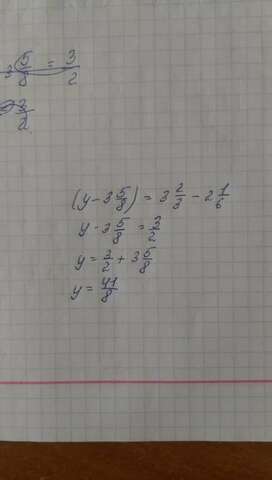 3 5/8 = 3/2
3/2
(y - 3 5/8) = 3 2/3 - 2 1/6
y - 3 5/8 = 3/2
y = 3/2 + 3 5/8
y = 41/8